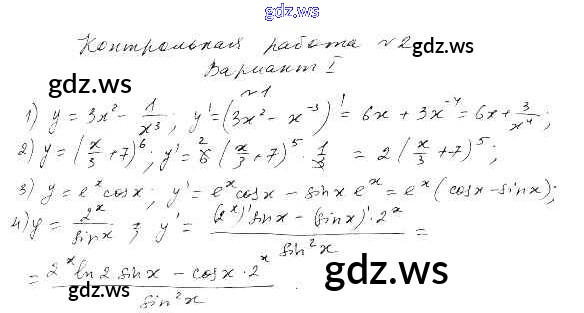 gdz.ws
Контрольная работа №2
gdz.ws
gdz.ws
Вариант I
№1
1) y = 3x² - 1/x³; y' = (3x² - x⁻³)' = 6x + 3x⁻⁴ = 6x + 3/x⁴;
2) y = (x/3 + 7)⁶; y' = 6̸² (x/3 + 7)⁵ · 1/3̸ = 2(x/3 + 7)⁵;
3) y = eˣ cos x; y' = eˣ cos x - sin x eˣ = eˣ (cos x - sin x);
4) y = 2ˣ/sin x; y' = ((2ˣ)' sin x - (sin x)' · 2ˣ)/sin² x =
= (2ˣ ln 2 sin x - cos x · 2ˣ)/sin² x.
gdz.ws
gdz.ws